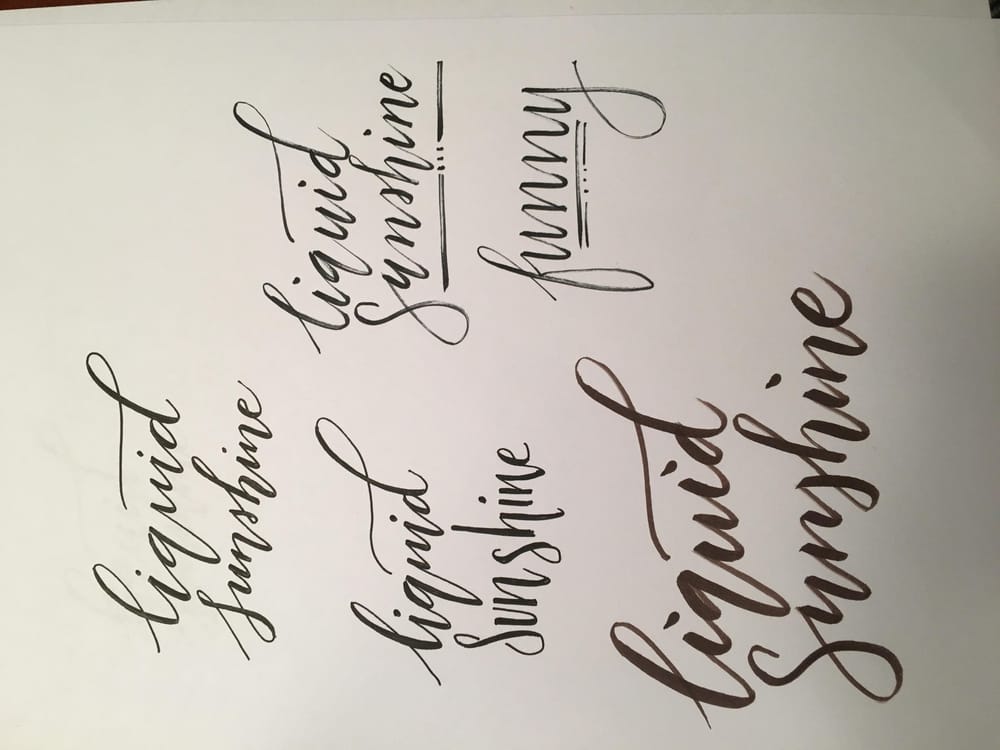 liquid
sunshine
liquid
sunshine
liquid
sunshine
funny
liquid
sunshine